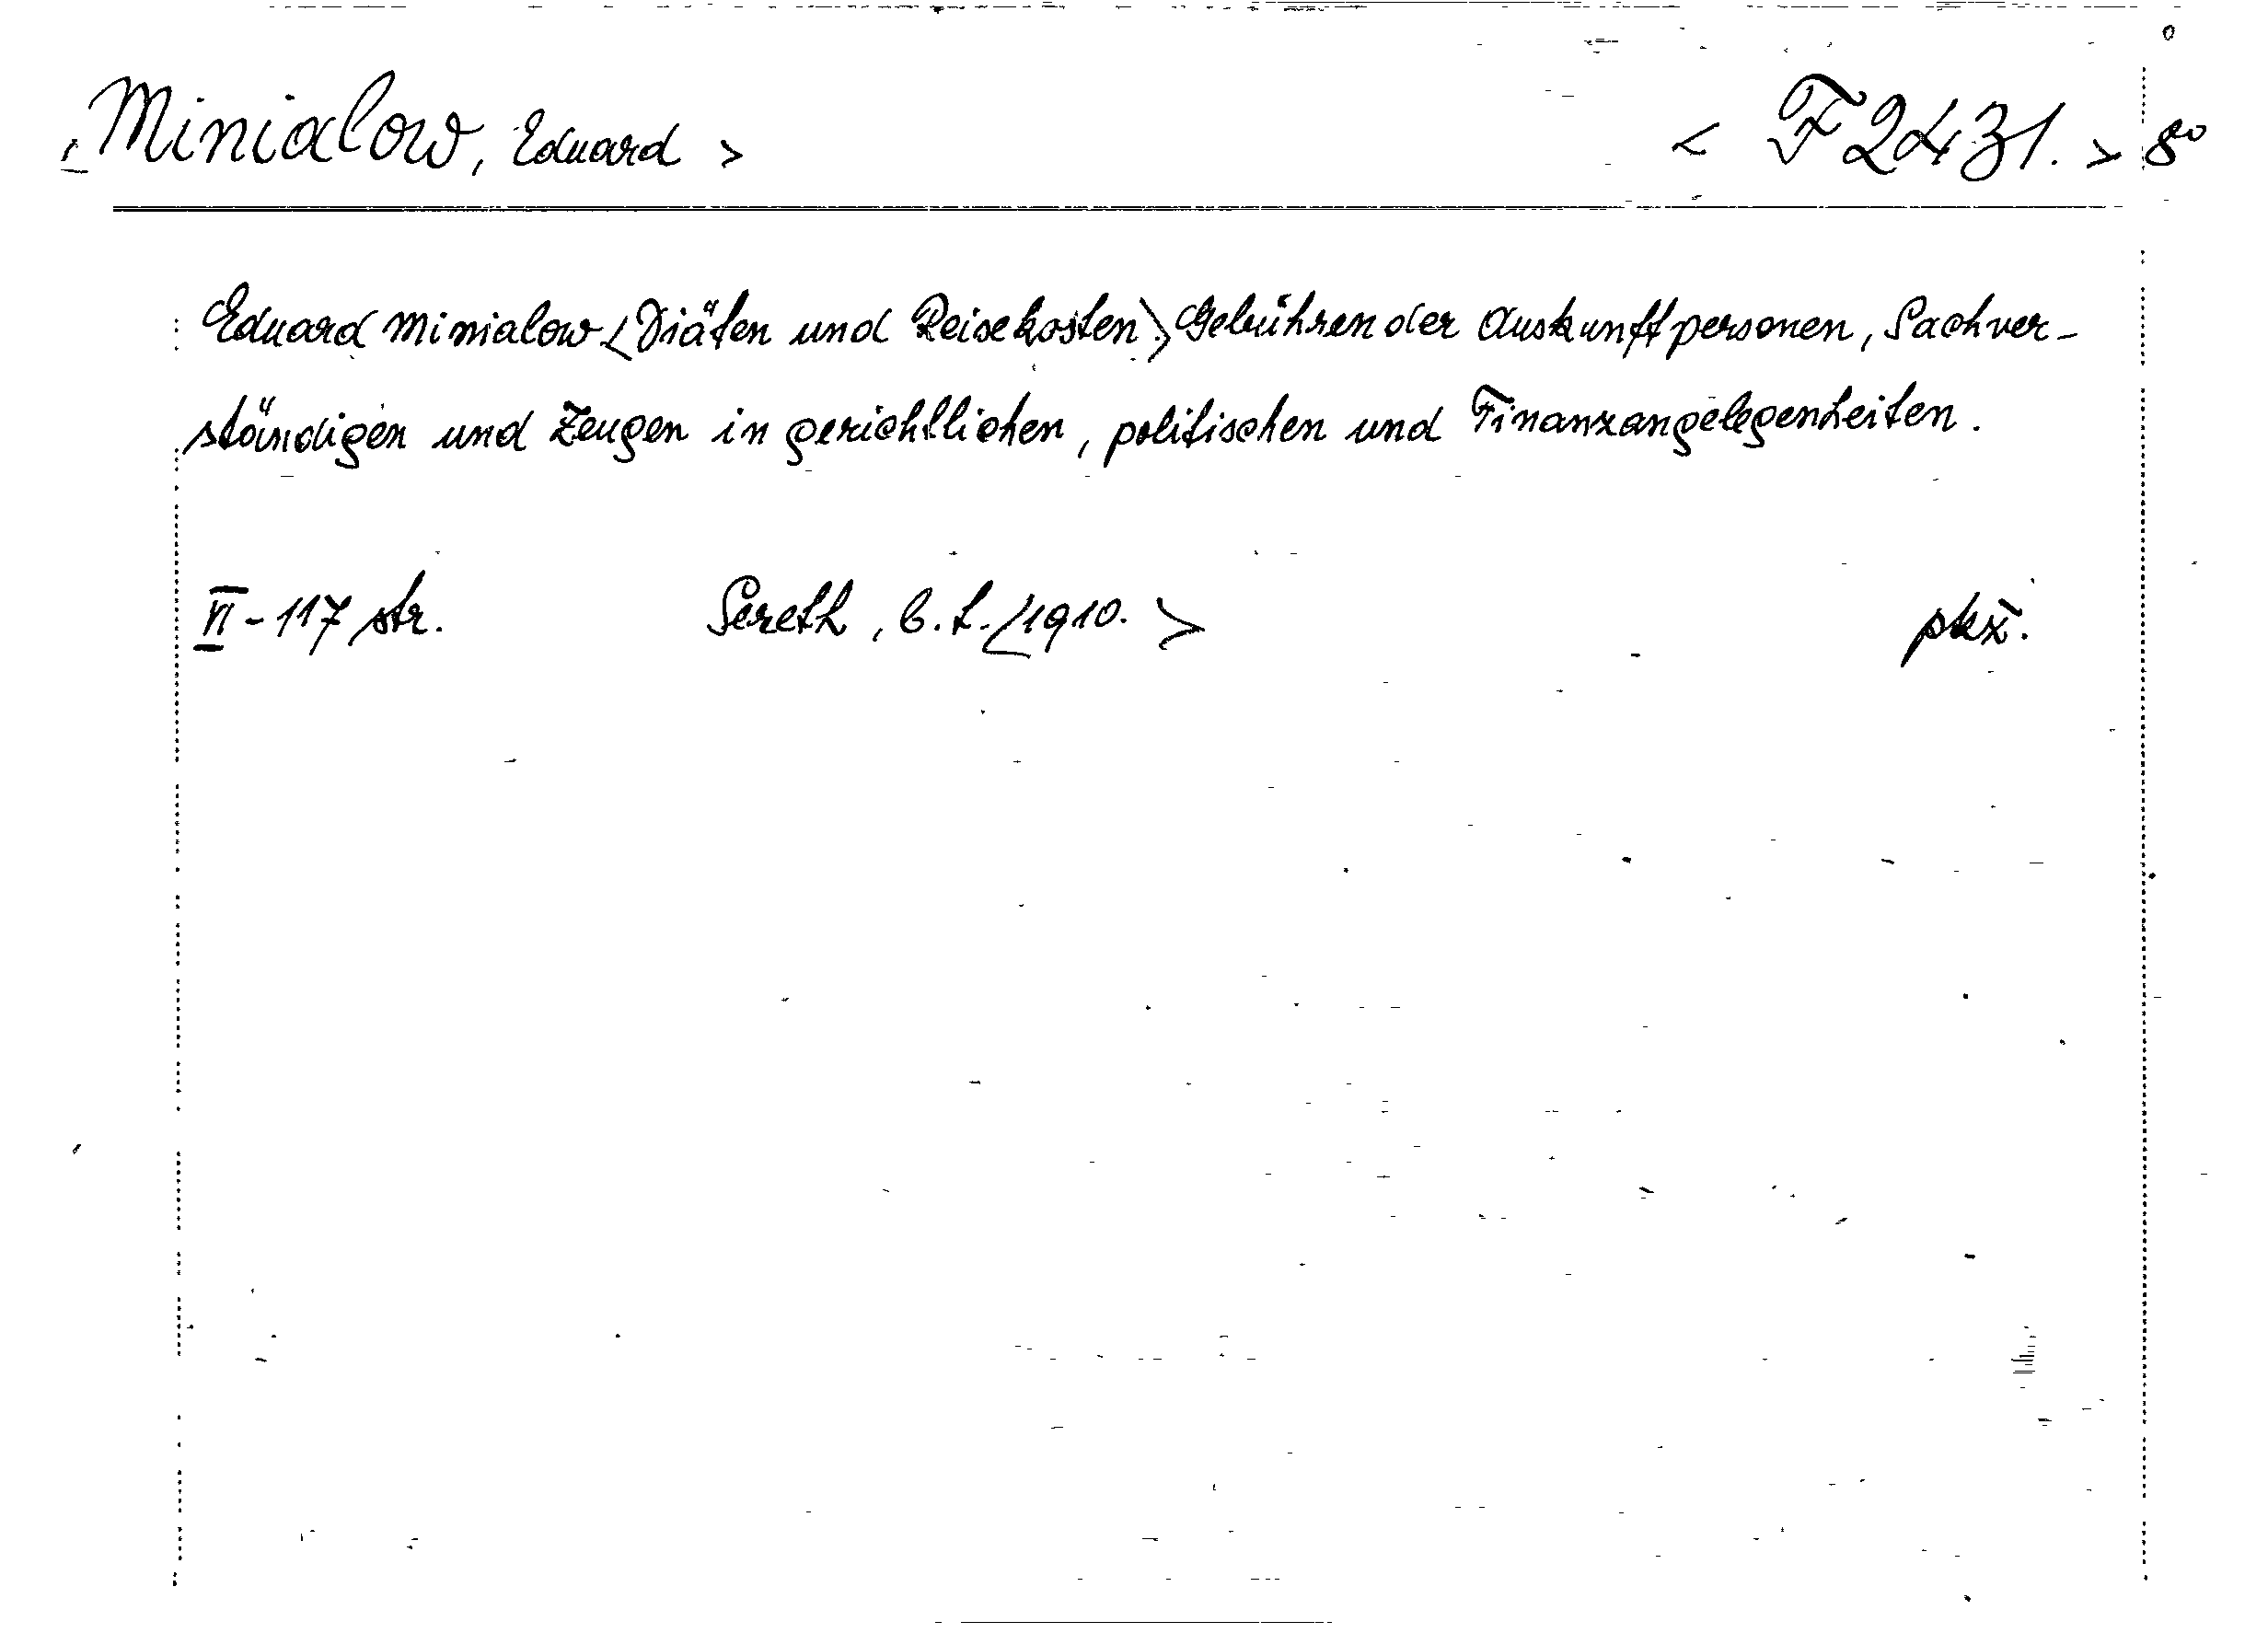 <Minialow, Eduard > < F 2431. > 8°
Eduard Minialow <Diäten und Reisekosten.> Gebühren der Auskunftpersonen, Sachver-
ständigen und Zeugen in gerichtlichen, politischen und Finanzangelegenheiten.
VI - 117 str. Sereth, b. t. <1910. > pkx̄.